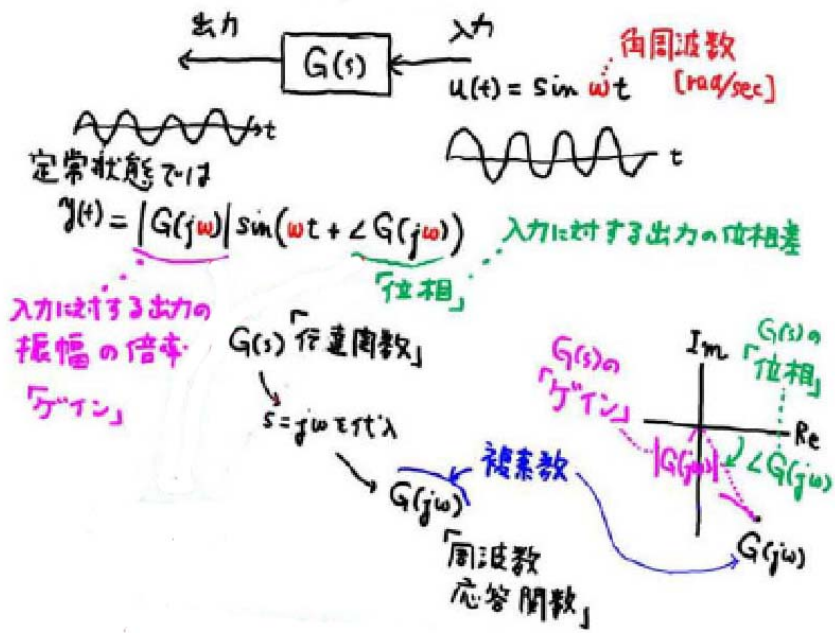 出力
G(s)
入力
u(t) = sin ωt
角周波数
[rad/sec]
t
t
定常状態では
y(t) = |G(jω)| sin(ωt + ∠G(jω))
入力に対する出力の位相差
「位相」
入力に対する出力の
振幅の倍率
「ゲイン」
G(s)「伝達関数」
s = jωを代入
G(jω)
複素数
「周波数
応答関数」
G(s)の
「ゲイン」
Im
G(s)の
「位相」
Re
|G(jω)|
∠G(jω)
G(jω)